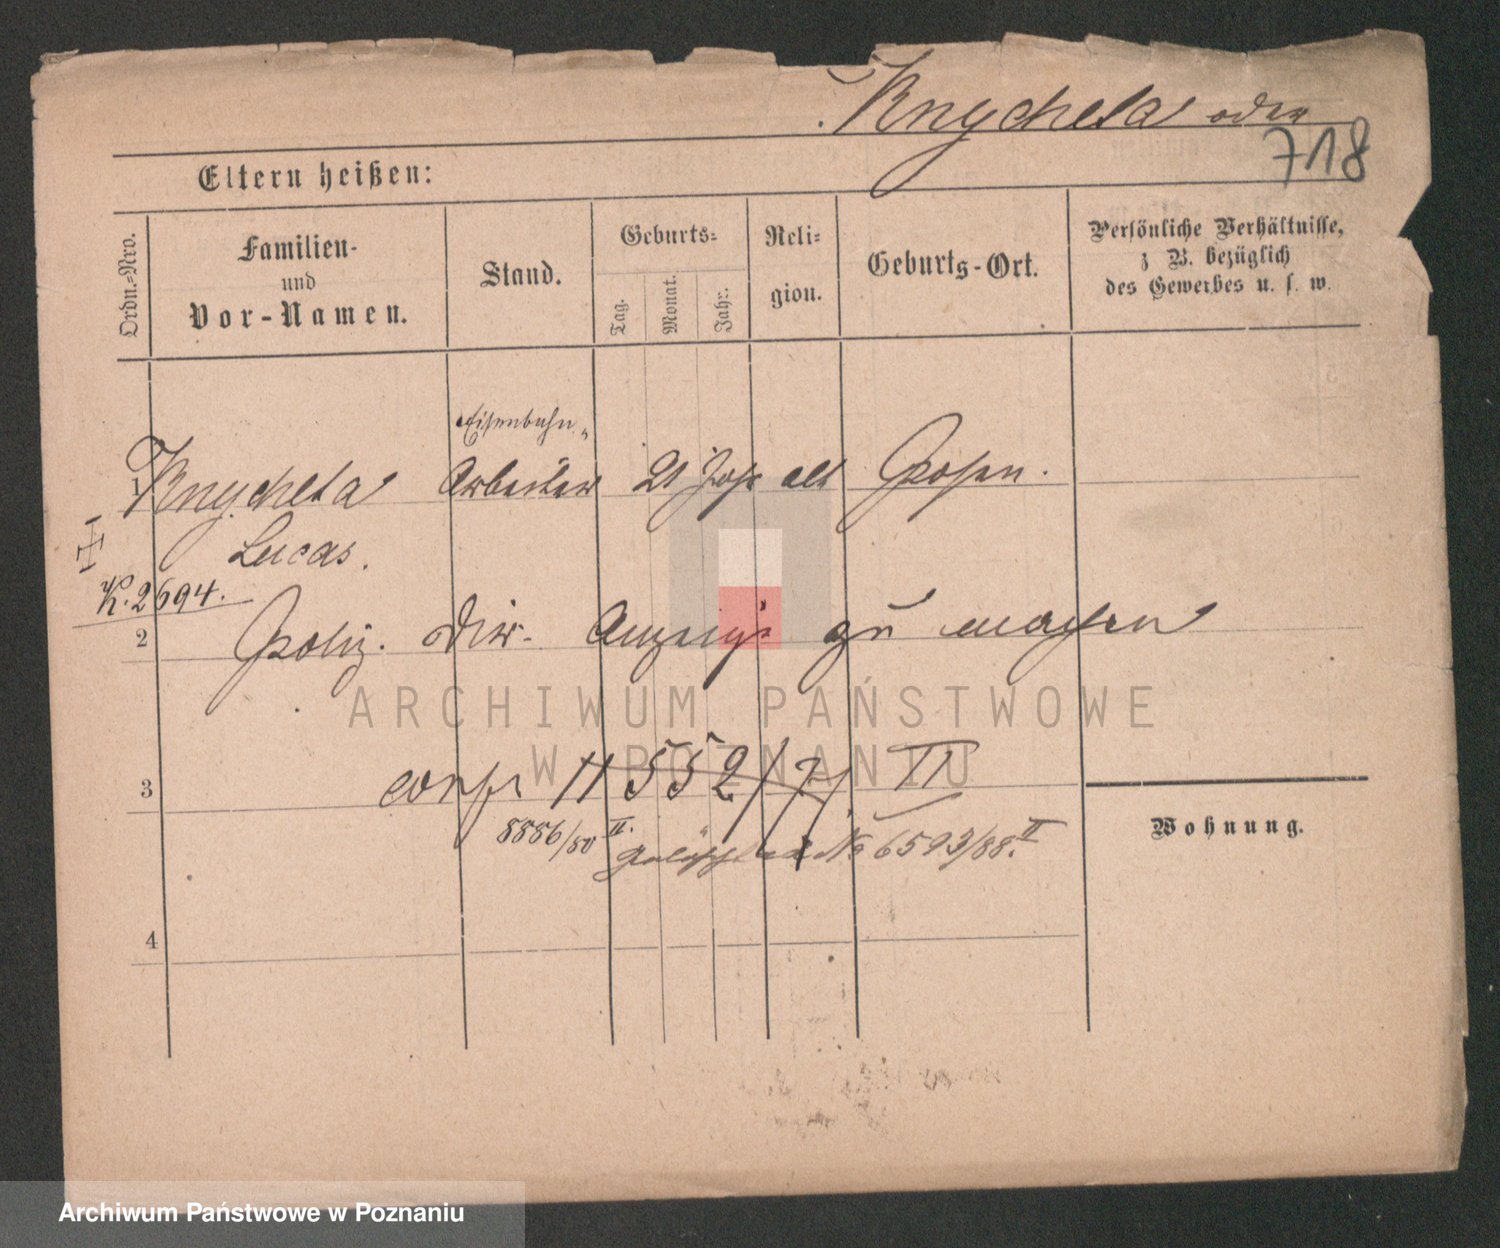 Knycheta oder
718
Eltern heißen:
Ordn.-Nro.
Familien-
und
Vor-Namen.
Stand.
Geburts-
Tag.
Monat.
Jahr.
Reli-
gion.
Geburts-Ort.
Persönliche Verhältnisse,
z B. bezüglich
des Gewerbes u. s. w.
Eisenbahn-
1 Knycheta Arbeiter 21 Jahr alt Posen.
Lucas.
K. 2694.
2 Poliz. Dir. Anzeige zu machen
ARCHIWUM PAŃSTWOWE
W POZNANIU
3 conf 11552/7 II
8886/80 II. gelöscht No 6593/88. II
Wohnung.
4
Archiwum Państwowe w Poznaniu